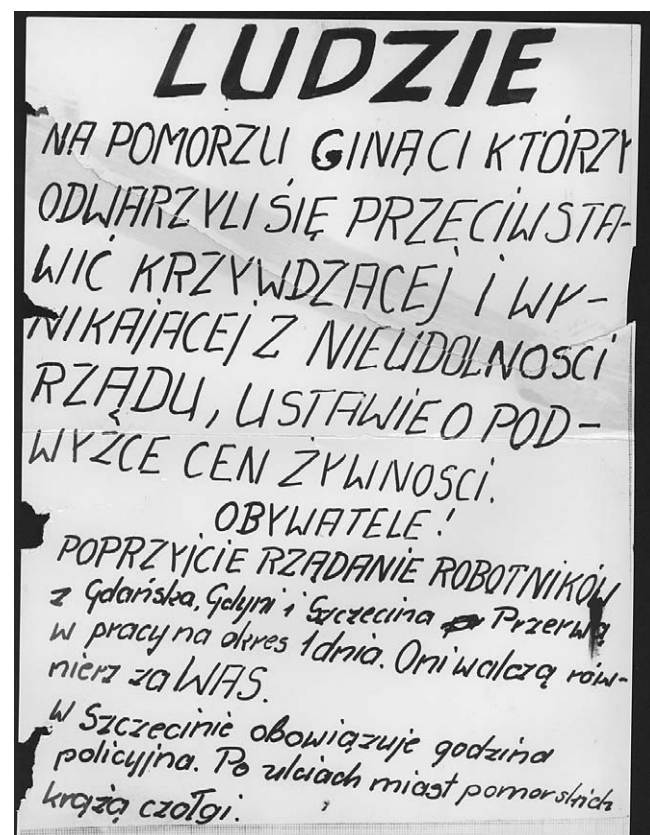 LUDZIE
NA POMORZU GINĄ CI KTÓRZY
ODWARZYLI SIĘ PRZECIWSTA-
WIĆ KRZYWDZĄCEJ I WY-
NIKAJĄCEJ Z NIEUDOLNOSCI
RZĄDU, USTAWIE O POD-
WYŻCE CEN ŻYWNOSCI.
OBYWATELE!
POPRZYJCIE RZĄDANIE ROBOTNIKÓW
z Gdańska, Gdyni i Szczecina Przerwą
w pracy na okres 1 dnia. Oni walczą rów-
nierz za WAS.
W Szczecinie obowiązuje godzina
policyjna. Po ulciach miast pomorskich
krążą czołgi.